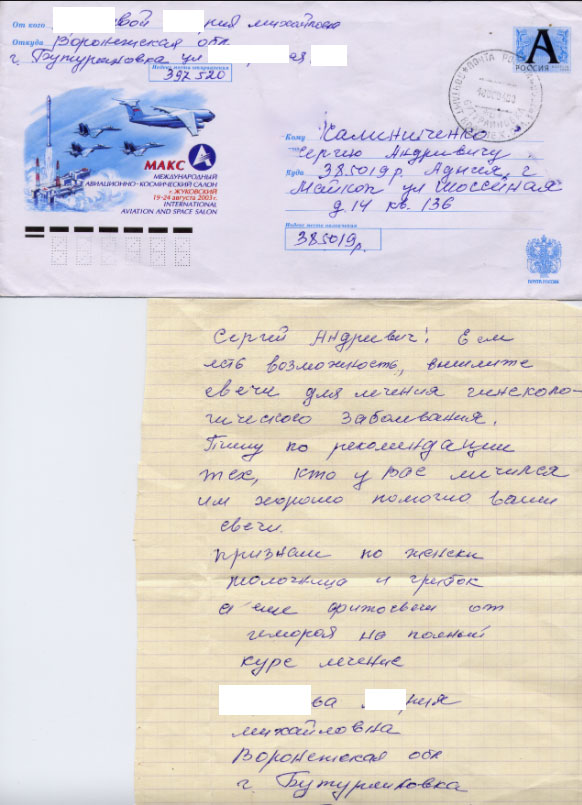 От кого вой ния михайловна
Откуда Воронежская обл
г. Бутурлиновка ул ая,
Индекс места отправления
397520
МАКС
МЕЖДУНАРОДНЫЙ
АВИАЦИОННО-КОСМИЧЕСКИЙ САЛОН
г. ЖУКОВСКИЙ
19-24 августа 2003 г.
INTERNATIONAL
AVIATION AND SPACE SALON
А
РОССИЯ
ПОЧТА
Кому Калиниченко
Сергею Андриевичу
Куда 385019р. Адигия, г
Майкоп ул Шоссейная
д. 14 кв. 136
Индекс места назначения
385019р.
ПОЧТА РОССИИ
Сергий Андриевич! Есм
есть возможность, вышлите
свечи для лечения гинеколо-
гического заболвания.
Пишу по рекомендации
тех, кто у вас личился
им хорошо помогли ваши
свечи.
признали по женски
молочница и грибок
а еще фитосвечи от
геморая на полный
курс лечение
ва ния
михайловна
Воронежская обл
г. Бутурлиновка